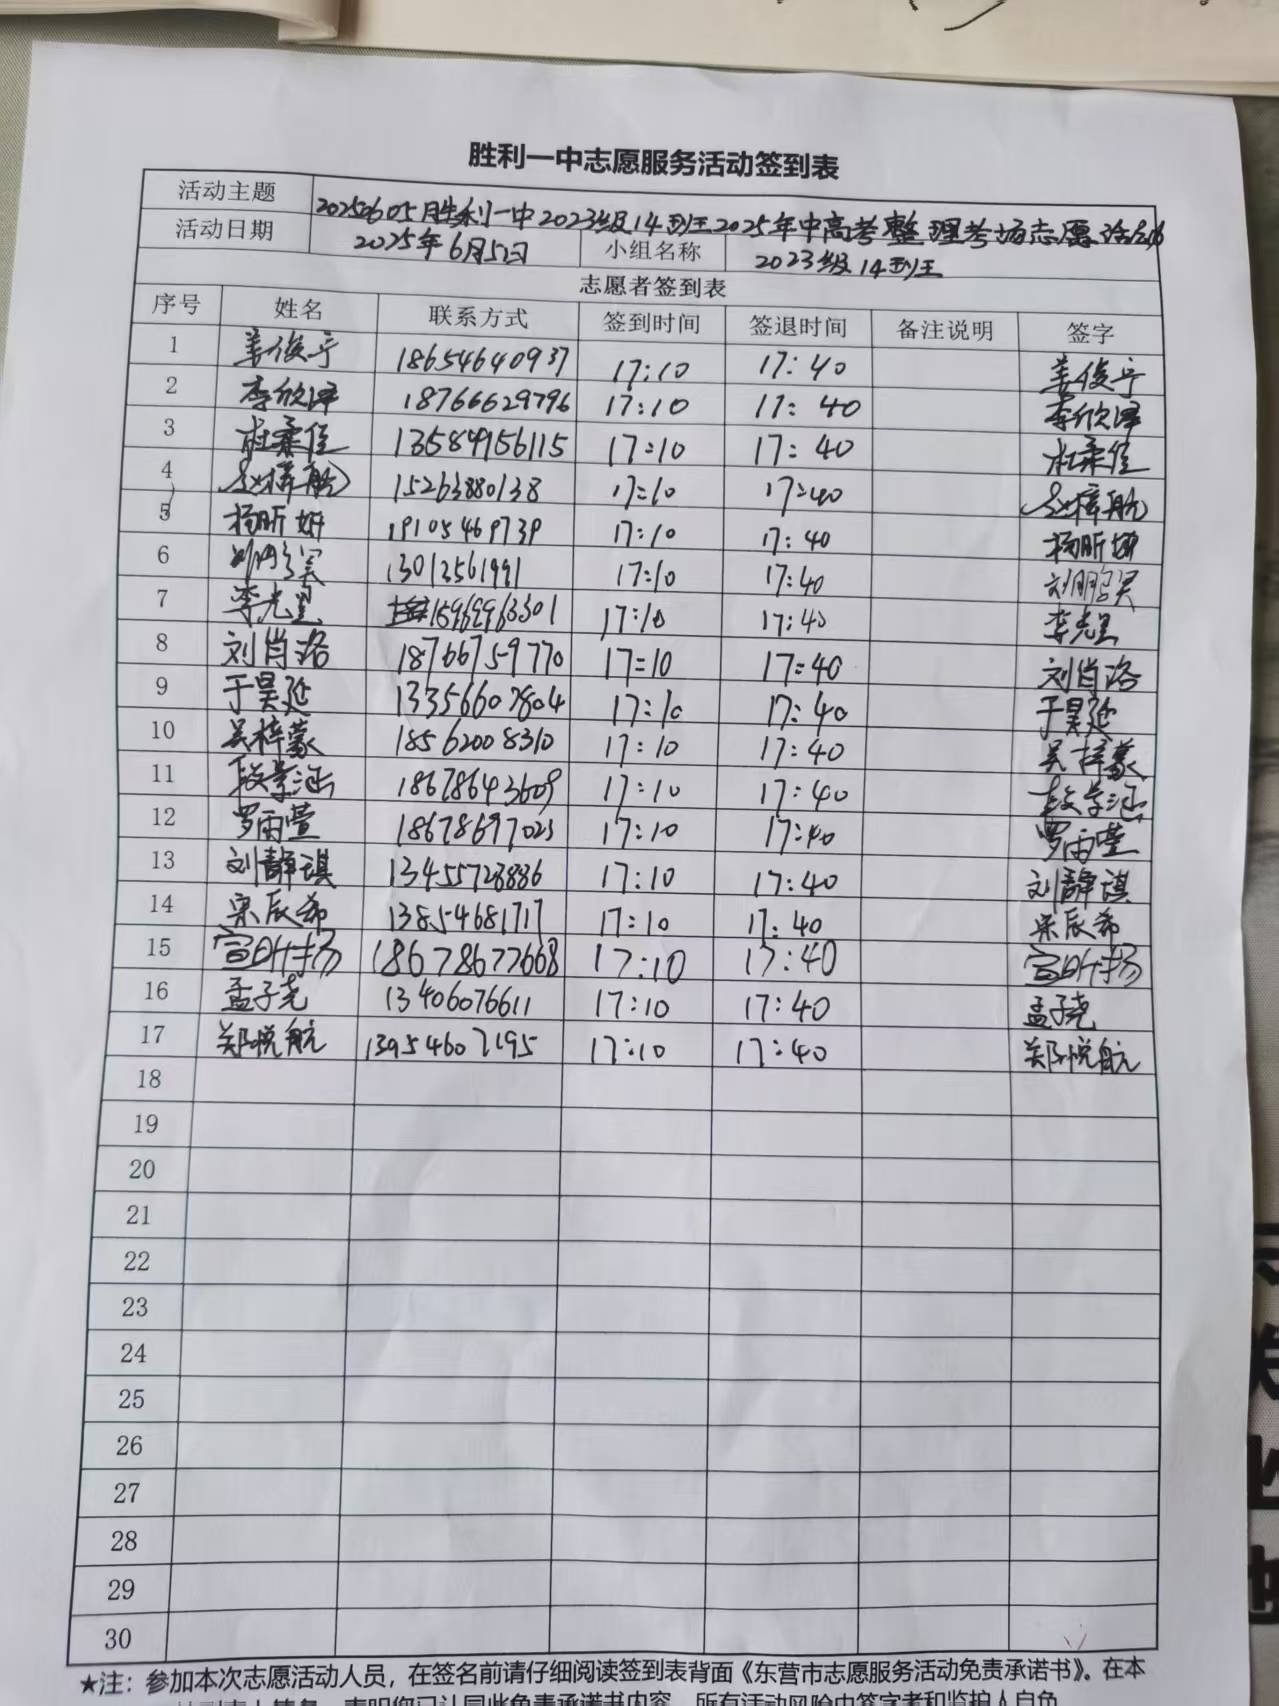 胜利一中志愿服务活动签到表
活动主题 20250605胜利一中2023级14班2025年中高考整理考场志愿活动
活动日期 2025年6月5日 小组名称 2023级14班
志愿者签到表
序号 姓名 联系方式 签到时间 签退时间 备注说明 签字
1 姜俊宇 18654640937 17:10 17:40 姜俊宇
2 李欣泽 18766629796 17:10 17:40 李欣泽
3 杜柔佳 13589956115 17:10 17:40 杜柔佳
4 赵梓航 15263880138 17:10 17:40 赵梓航
5 杨昕妍 19105469739 17:10 17:40 杨昕妍
6 刘鹏昊 13012561991 17:10 17:40 刘鹏昊
7 李光星 15969963301 17:10 17:40 李光星
8 刘肖洛 18766759770 17:10 17:40 刘肖洛
9 于昊延 13356607804 17:10 17:40 于昊延
10 吴梓蒙 18562008310 17:10 17:40 吴梓蒙
11 段景涵 18678643609 17:10 17:40 段景涵
12 罗雨萱 18678697023 17:10 17:40 罗雨萱
13 刘静琪 13455728886 17:10 17:40 刘静琪
14 宋辰希 13854681717 17:10 17:40 宋辰希
15 宣明扬 18678677668 17:10 17:40 宣明扬
16 孟子尧 13406076611 17:10 17:40 孟子尧
17 郑悦航 13954607195 17:10 17:40 郑悦航
18
19
20
21
22
23
24
25
26
27
28
29
30
★注：参加本次志愿活动人员，在签名前请仔细阅读签到表背面《东营市志愿服务活动免责承诺书》。在本
声明您已认同此免责承诺书内容，所有活动风险由签字者和监护人自负